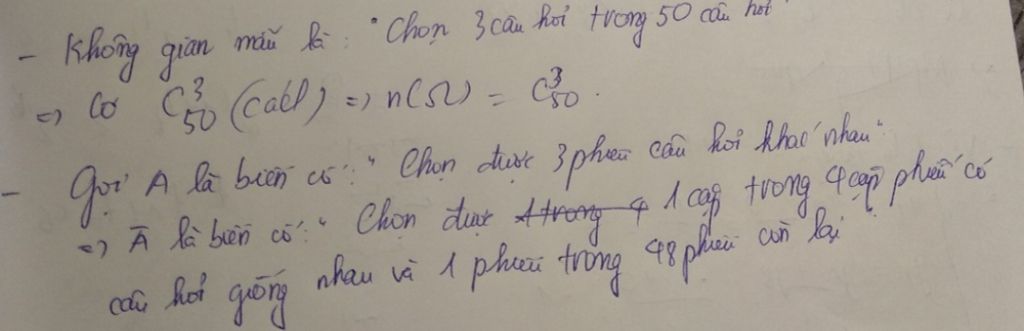 - Không gian mẫu là: "Chọn 3 câu hỏi trong 50 câu hỏi
=> Có C³₅₀ (cách) => n(Ω) = C³₅₀.
- Gọi A là biến cố: "Chọn được 3 phiếu câu hỏi khác nhau"
=> Ā là biến cố: "Chọn được 1 trong 4 1 cặp trong 4 cặp phiếu có
câu hỏi giống nhau và 1 phiếu trong 48 phiếu còn lại"